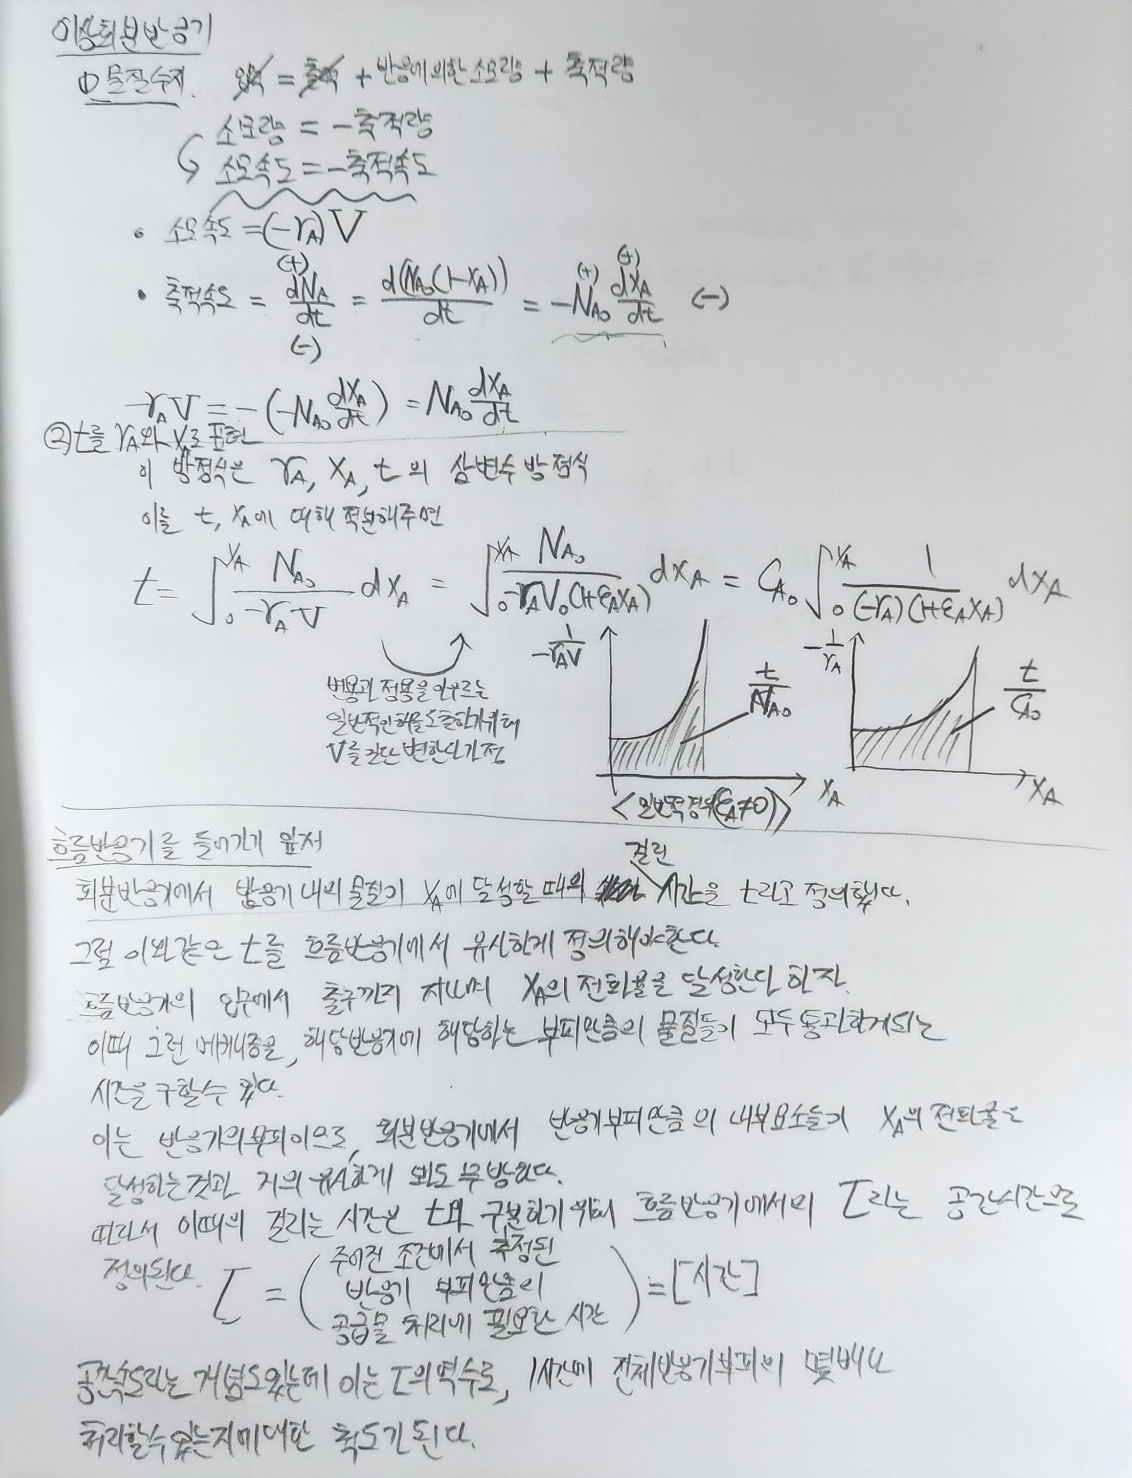 이상회분반응기
① 물질수지. 입력 = 출력 + 반응에 의한 소모량 + 축적량
소모량 = -축적량
소모속도 = -축적속도
• 소모속도 = (-rA)V
(+)
• 축적속도 = dNA/dt = d(NA0(1-XA))/dt = -NA0 dXA/dt (-)
(+) (+)
(-)
-rA V = -(-NA0 dXA/dt) = NA0 dXA/dt
② t를 rA와 XA로 표현
이 방정식은 rA, XA, t의 삼변수 방정식
이를 t, XA에 대해 적분해주면
t = ∫0^XA NA0/(-rA V) dXA = ∫0^XA NA0/(-rA V0(1+εAXA)) dXA = CA0 ∫0^XA 1/((-rA)(1+εAXA)) dXA
변용과 정용을 아우르는
일반적인 해를 도출하기 위해
V를 일단 변한다 가정
1/-rAV
t/NA0
XA
<일반적 경우(εA≠0)>
-1/rA
t/CA0
XA
흐름반응기를 들어가기 앞서
회분반응기에서 반응기 내의 물질이 XA에 달성할 때의 걸린 시간을 t라고 정의했다.
그럼 이와같은 t를 흐름반응기에서 유사하게 정의해야한다.
흐름반응기의 입구에서 출구까지 지나며 XA의 전화율을 달성한다 하자.
이때 그런 메커니즘을, 해당반응기에 해당하는 부피만큼의 물질들이 모두 통과하게되는
시간을 구할수 있다.
이는 반응기의 부피이므로, 회분반응기에서 반응기부피만큼의 내부요소들이 XA의 전화율을
달성하는것과 거의 유사하게 봐도 무방하다.
따라서 이때의 걸리는 시간은 t와 구분하기 위해 흐름반응기에서의 τ라는 공간시간으로
정의된다. τ = (주어진 조건에서 측정된 반응기 부피만큼의 공급물 처리에 필요한 시간) = [시간]
공간속도라는 개념도있는데 이는 τ의 역수로, 1시간에 전체반응기부피의 몇배나
처리할수 있는지에대한 척도가 된다.